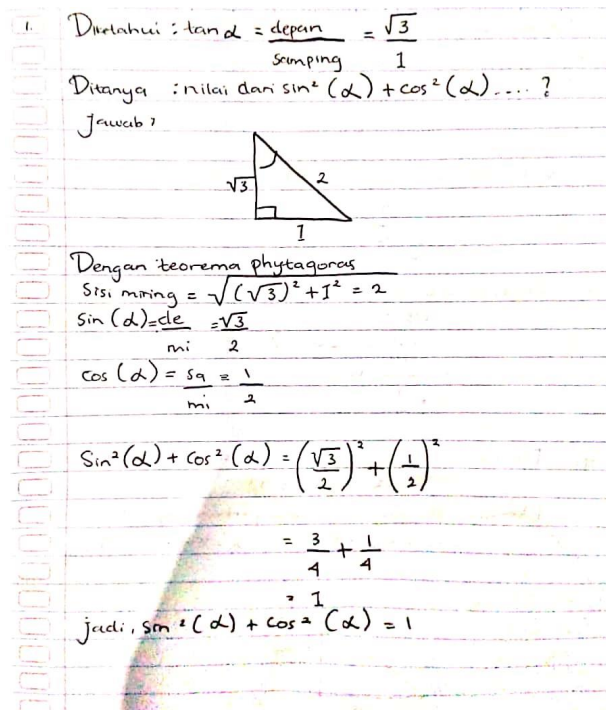 1. Diketahui : tan α = depan/samping = √3/1
Ditanya : nilai dari sin² (α) + cos² (α) .... ?
Jawab ?
√3
2
1
Dengan teorema phytagoras
Sisi miring = √(√3)² + 1² = 2
Sin (α) = de/mi = √3/2
cos (α) = sa/mi = 1/2
Sin² (α) + cos² (α) = (√3/2)² + (1/2)²
= 3/4 + 1/4
= 1
jadi, sin² (α) + cos² (α) = 1